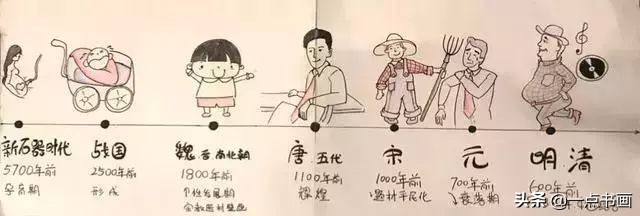 新石器时代
5700年前
孕育期
战国
2500年前
形成
魏晋南北朝
1800年前
个性发展期
唐.五代
1100年前
辉煌
宋
1000年前
题材平民化
元
700年前
衰落期
明.清
600年前
头条 @一点书画